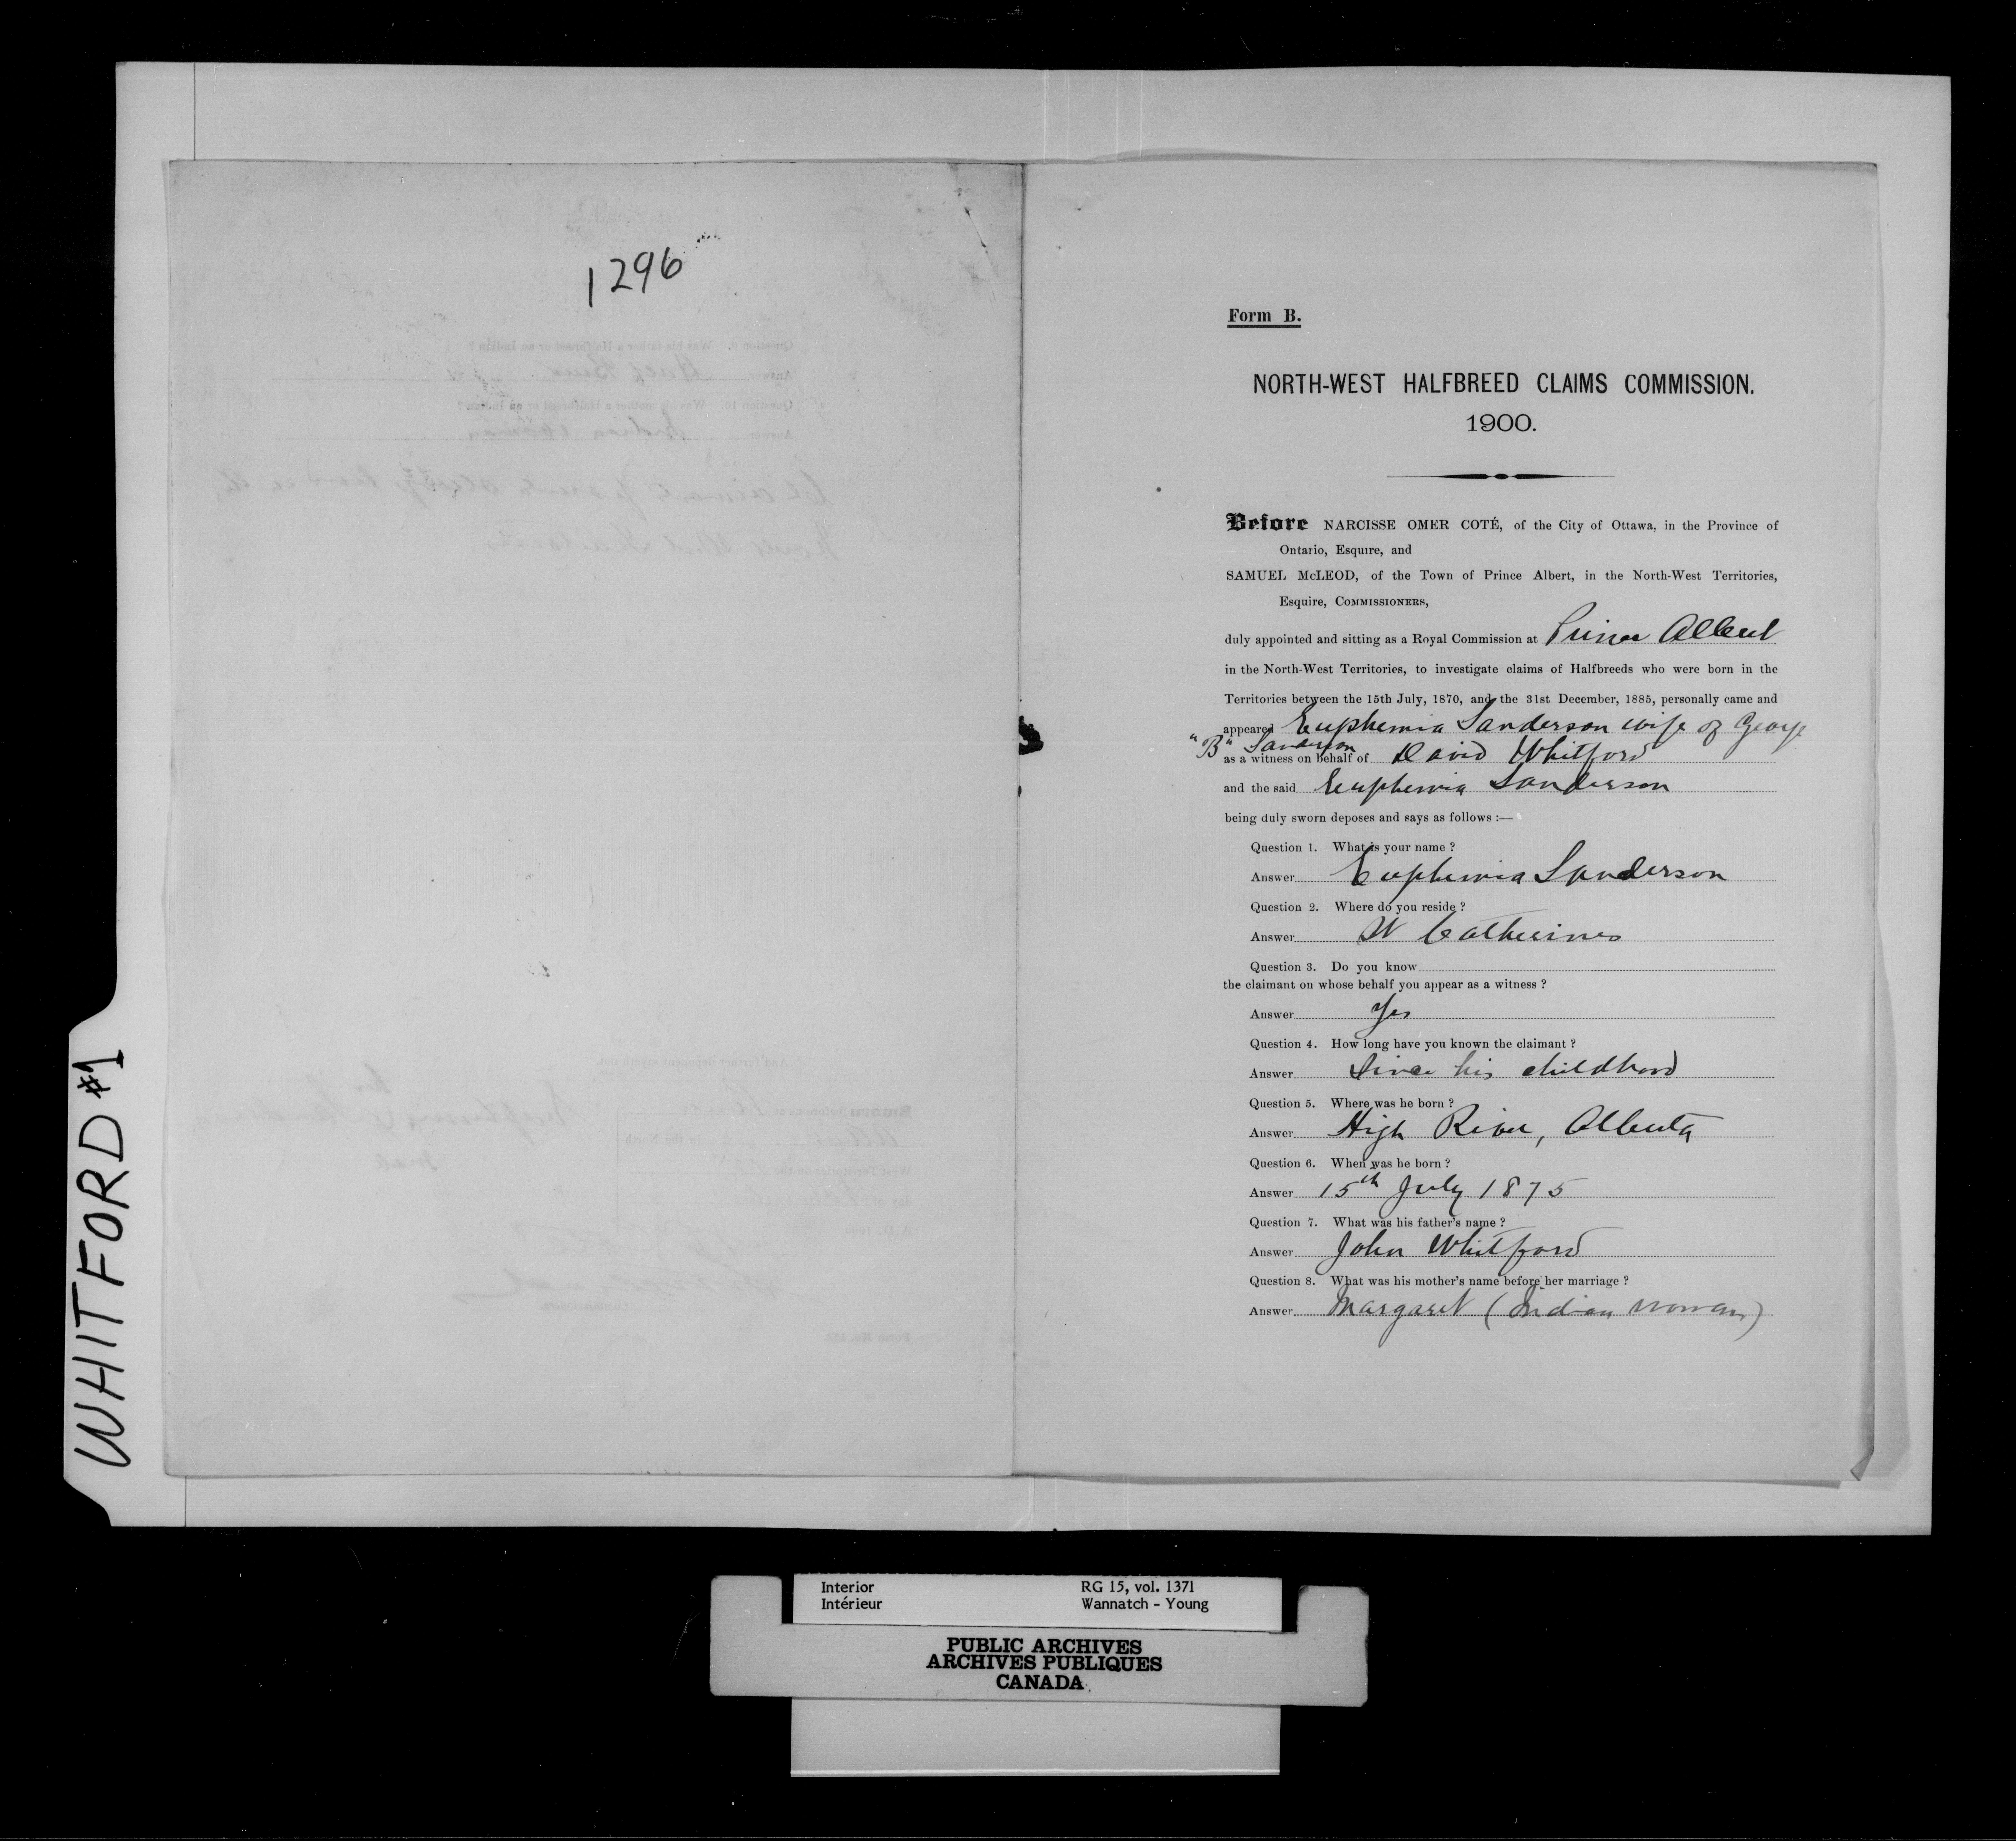 1296
WHITFORD #1
Form B.
NORTH-WEST HALFBREED CLAIMS COMMISSION.
1900.
Before NARCISSE OMER COTÉ, of the City of Ottawa, in the Province of
Ontario, Esquire, and
SAMUEL McLEOD, of the Town of Prince Albert, in the North-West Territories,
Esquire, COMMISSIONERS,
duly appointed and sitting as a Royal Commission at Prince Albert
in the North-West Territories, to investigate claims of Halfbreeds who were born in the
Territories between the 15th July, 1870, and the 31st December, 1885, personally came and
appeared Euphemia Sanderson wife of George
"B" Sanderson
as a witness on behalf of David Whitford
and the said Euphemia Sanderson
being duly sworn deposes and says as follows :—
Question 1. What is your name ?
Answer Euphemia Sanderson
Question 2. Where do you reside ?
Answer St Catherines
Question 3. Do you know
the claimant on whose behalf you appear as a witness ?
Answer Yes
Question 4. How long have you known the claimant ?
Answer Since his childhood
Question 5. Where was he born ?
Answer High River, Alberta
Question 6. When was he born ?
Answer 15th July 1875
Question 7. What was his father's name ?
Answer John Whitford
Question 8. What was his mother's name before her marriage ?
Answer Margaret (Indian woman)
Interior RG 15, vol. 1371
Intérieur Wannatch - Young
PUBLIC ARCHIVES
ARCHIVES PUBLIQUES
CANADA